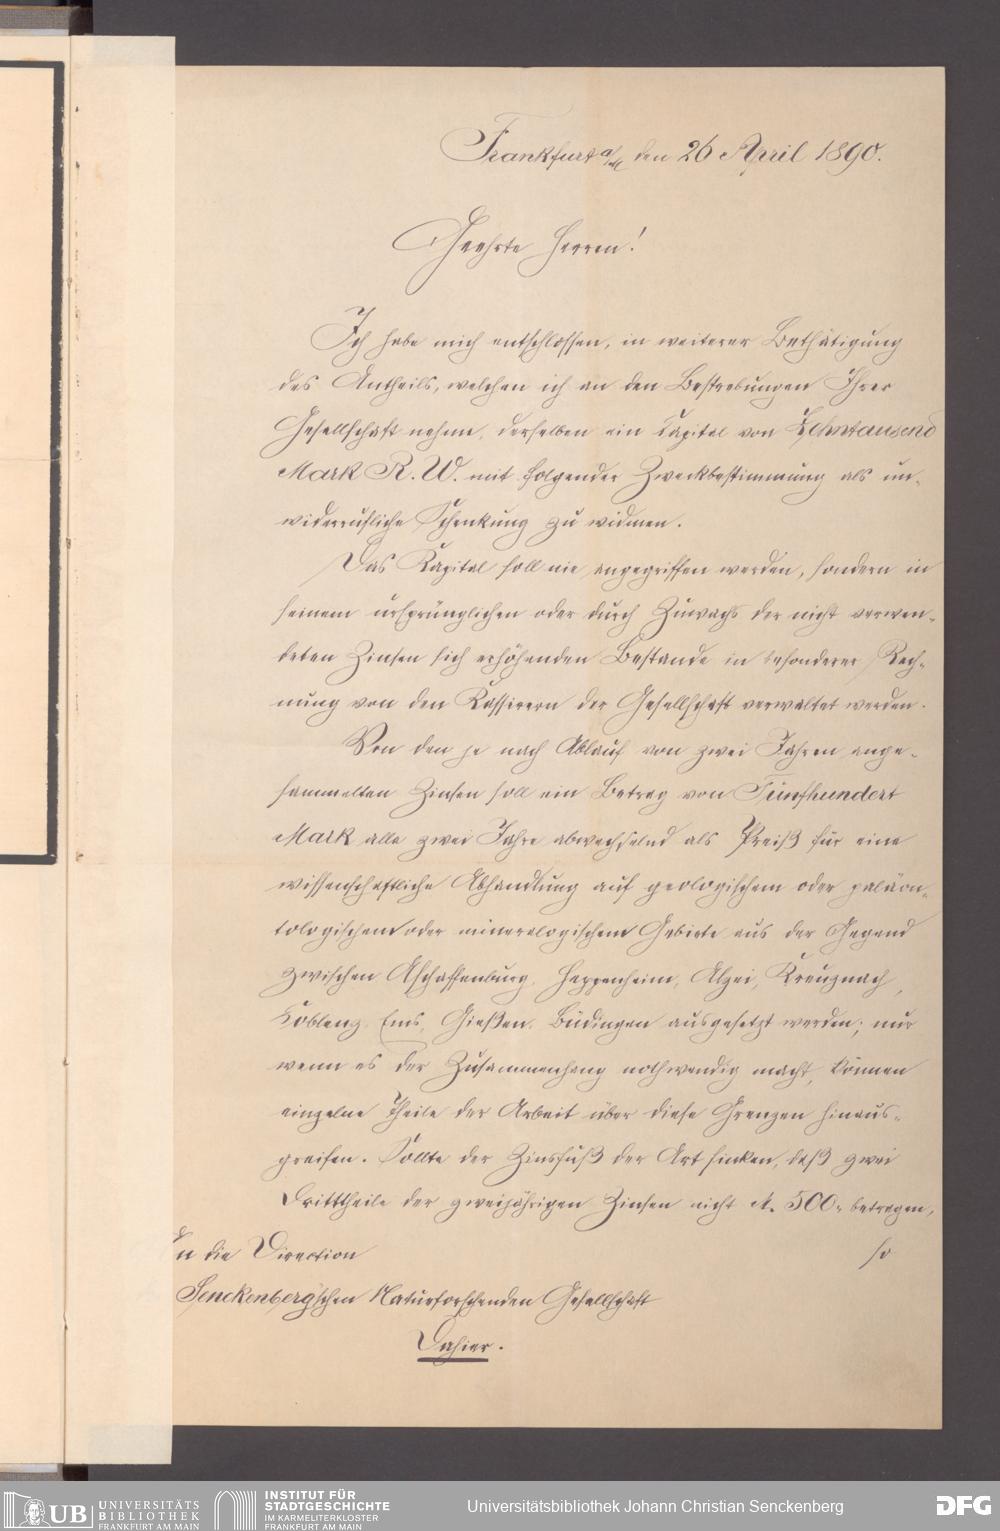 Frankfurt a/M den 26 April 1890.
Geehrte Herren!
Ich habe mich entschlossen, in weiterer Bethätigung
des Antheils, welchen ich an den Bestrebungen Ihrer
Gesellschaft nehme, derselben ein Capital von Zehntausend
Mark R. W. mit folgender Zweckbestimmung als un-
widerrufliche Schenkung zu widmen.
Das Kapital soll nie angegriffen werden, sondern in
seinem ursprünglichen oder durch Zuwachs der nicht verwen-
deten Zinsen sich erhöhenden Bestande in besonderer Rech-
nung von den Kassirern der Gesellschaft verwaltet werden.
Von den je nach Ablauf von zwei Jahren ange-
sammelten Zinsen soll ein Betrag von Fünfhundert
Mark alle zwei Jahre abwechselnd als Preiß für eine
wissenschaftliche Abhandlung auf geologischem oder paläon-
tologischem oder mineralogischem Gebiete aus der Gegend
zwischen Aschaffenburg, Heppenheim, Alzei, Kreuznach,
Coblenz, Ems, Gießen, Büdingen ausgesetzt werden; nur
wenn es der Zusammenhang nothwendig macht, können
einzelne Theile der Arbeit über diese Grenzen hinaus-
greifen. Sollte der Zinsfuß der Art sinken, daß zwei
Dritttheile der zweijährigen Zinsen nicht M. 500,- betragen,
so
An die Direction
Senckenberg'schen Naturforschenden Gesellschaft
Dahier.
UB UNIVERSITÄTS
BIBLIOTHEK
FRANKFURT AM MAIN
INSTITUT FÜR
STADTGESCHICHTE
IM KARMELITERKLOSTER
FRANKFURT AM MAIN
Universitätsbibliothek Johann Christian Senckenberg
DFG